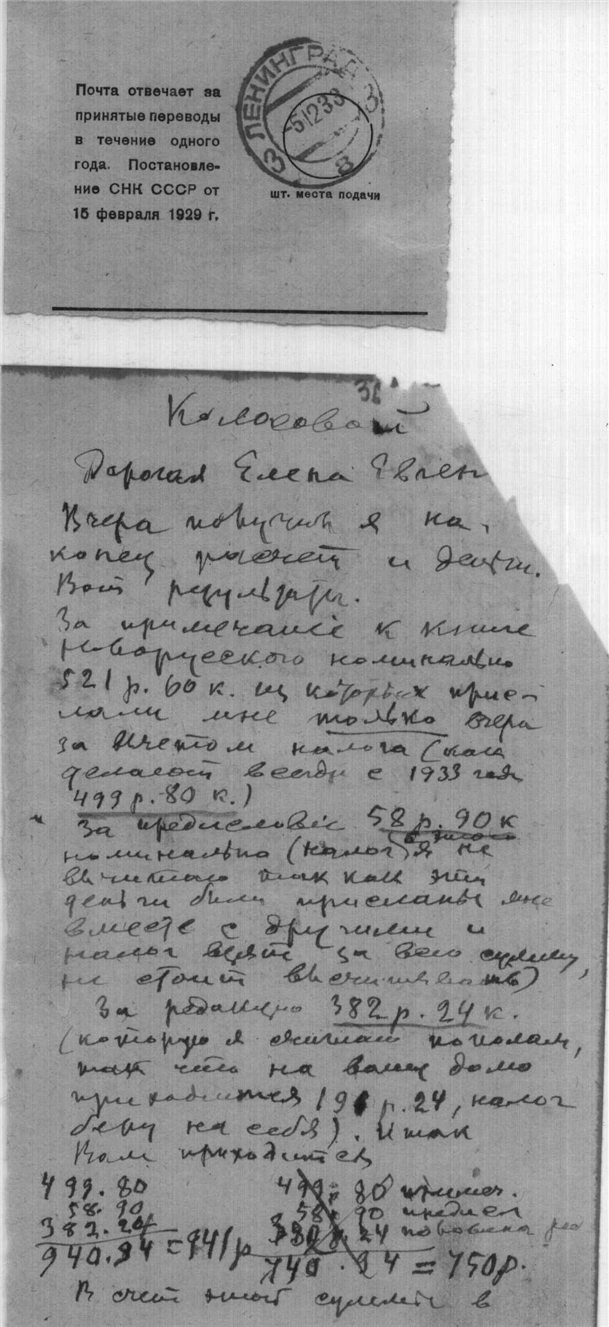 Почта отвечает за
принятые переводы
в течение одного
года. Постановле-
ние СНК СССР от
15 февраля 1929 г.
ЛЕНИНГРАД 3
51233
шт. места подачи
36
Колосовой
Дорогая Елена Евген
Вчера получил я на-
конец расчет и деньги.
Вот результаты.
За примечание к книге
Новорусского номинально
521 р. 60 к. из которых прис-
лали мне только вчера
за вычетом налога (как
делают всегда с 1933 года
499 р. 80 к.)
За предисловие 58 р. 90 к
номинально (налог я не
вычитаю так как эти
деньги были присланы мне
вместе с другими и
налог взят за всю сумму,
не стоит высчитывать)
За редакцию 382 р. 24 к.
(которую я считаю пополам,
так что на вашу долю
приходится 191 р. 24, налог
беру на себя). Итак
Вам приходится
499.80 499.80 примеч.
58.90 58.90 предисл
382.24 24 половина ред
940.94 = 941 р 740.24 = 750 р.
В счет этой суммы в